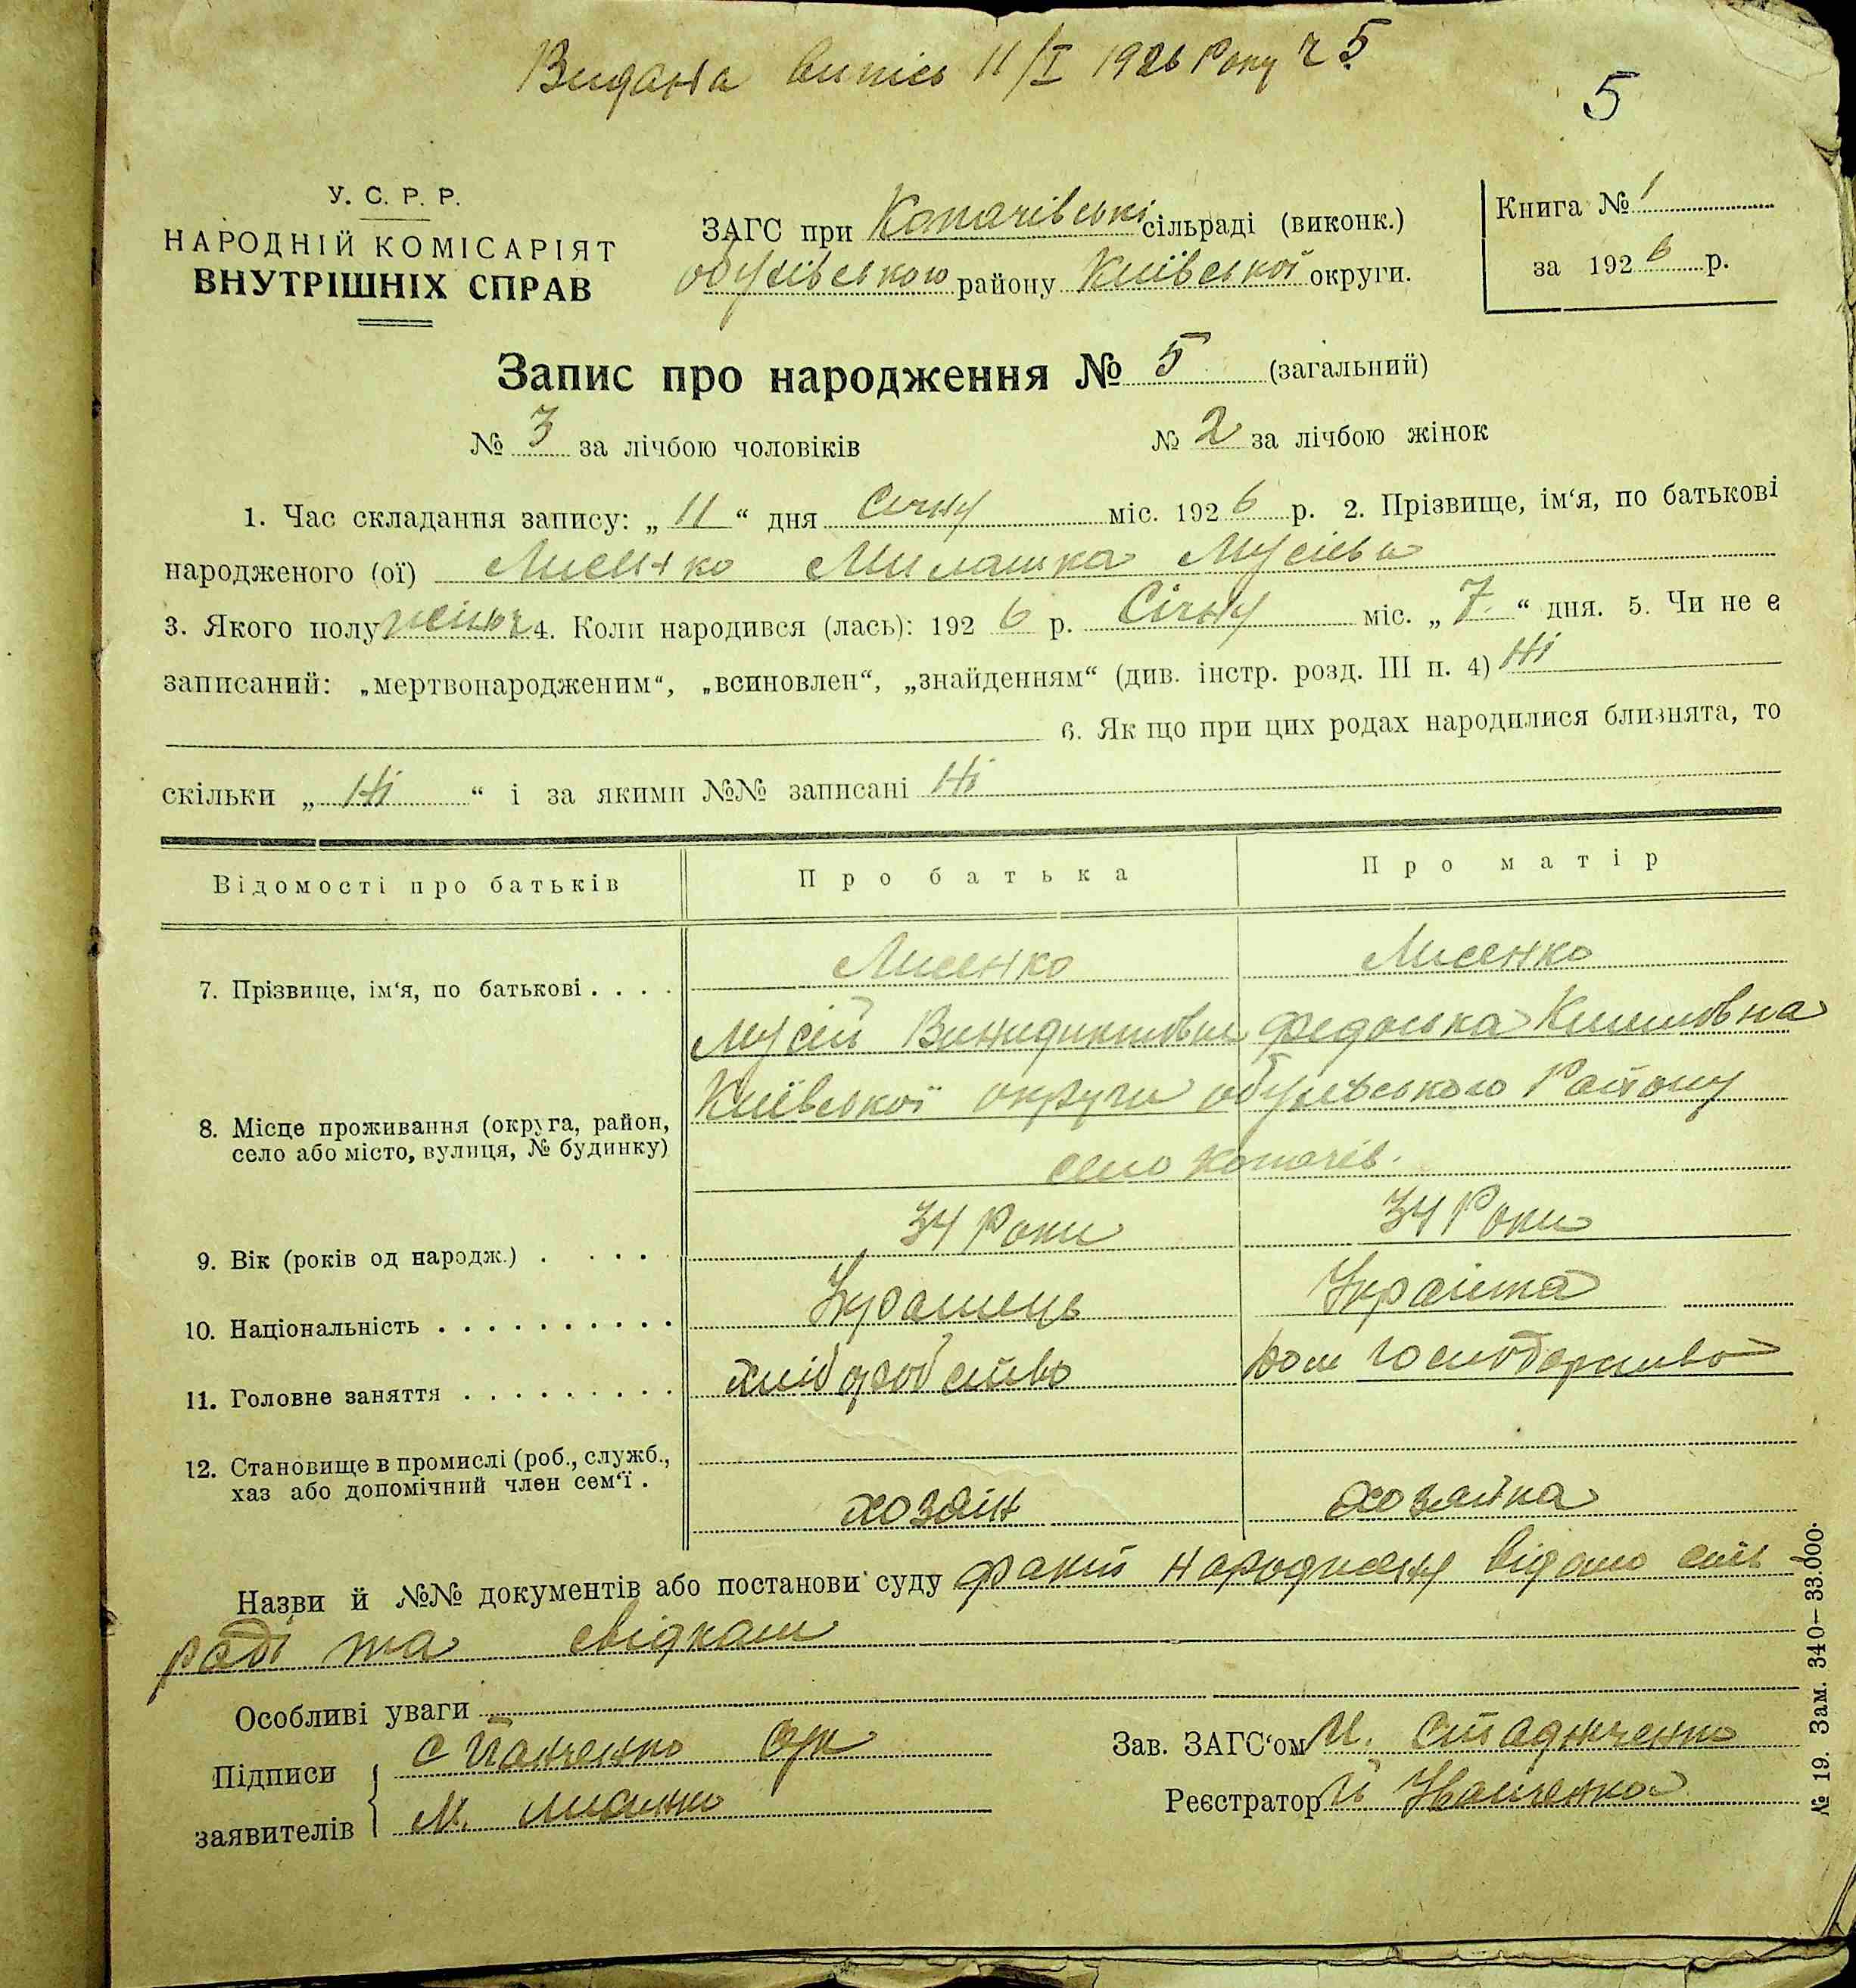 Видана випісь 11/I 1926 Року 2 5
5
У. С. Р. Р.
НАРОДНІЙ КОМІСАРІЯТ
ВНУТРІШНІХ СПРАВ
ЗАГС при Копачівські сільраді (виконк.)
обухівською району Київської округи.
Книга № 1
за 1926 р.
Запис про народження № 5 (загальний)
№ 3 за лічбою чоловіків № 2 за лічбою жінок
1. Час складання запису: „ 11 “ дня Січня міс. 1926 р. 2. Прізвище, ім‘я, по батькові
народженого (ої) Лисенко Милашка Мусієва
3. Якого полу 4. Коли народився (лась): 1926 р. Січня міс. „ 7 “ дня. 5. Чи не є
записаний: „мертвонародженим“, „всиновлен“, „знайденням“ (див. інстр. розд. III п. 4) Ні
6. Як що при цих родах народилися близнята, то
скільки „ Ні “ і за якими №№ записані Ні
Відомості про батьків Про батька Про матір
7. Прізвище, ім‘я, по батькові . . . . Лисенко Лисенко
Мусій Федоська
8. Місце проживання (округа, район, село або місто, вулиця, № будинку) Київської округи обухівського Району
село Копачів.
9. Вік (років од народж.) . . . . . 34 Роки 34 Роки
10. Національність . . . . . . . . . . Українець Українка
11. Головне заняття . . . . . . . . . хліборобство Дом господарство
12. Становище в промислі (роб., служб., хаз або допомічний член сем‘ї . хозяін хозяйка
Назви й №№ документів або постанови суду факт народження відомо сіль
раді та свідкам
Особливі уваги
Підписи заявителів
М. Лисенко
Зав. ЗАГС‘ом
Реєстратор
№ 19. Зам. 340—33.000.